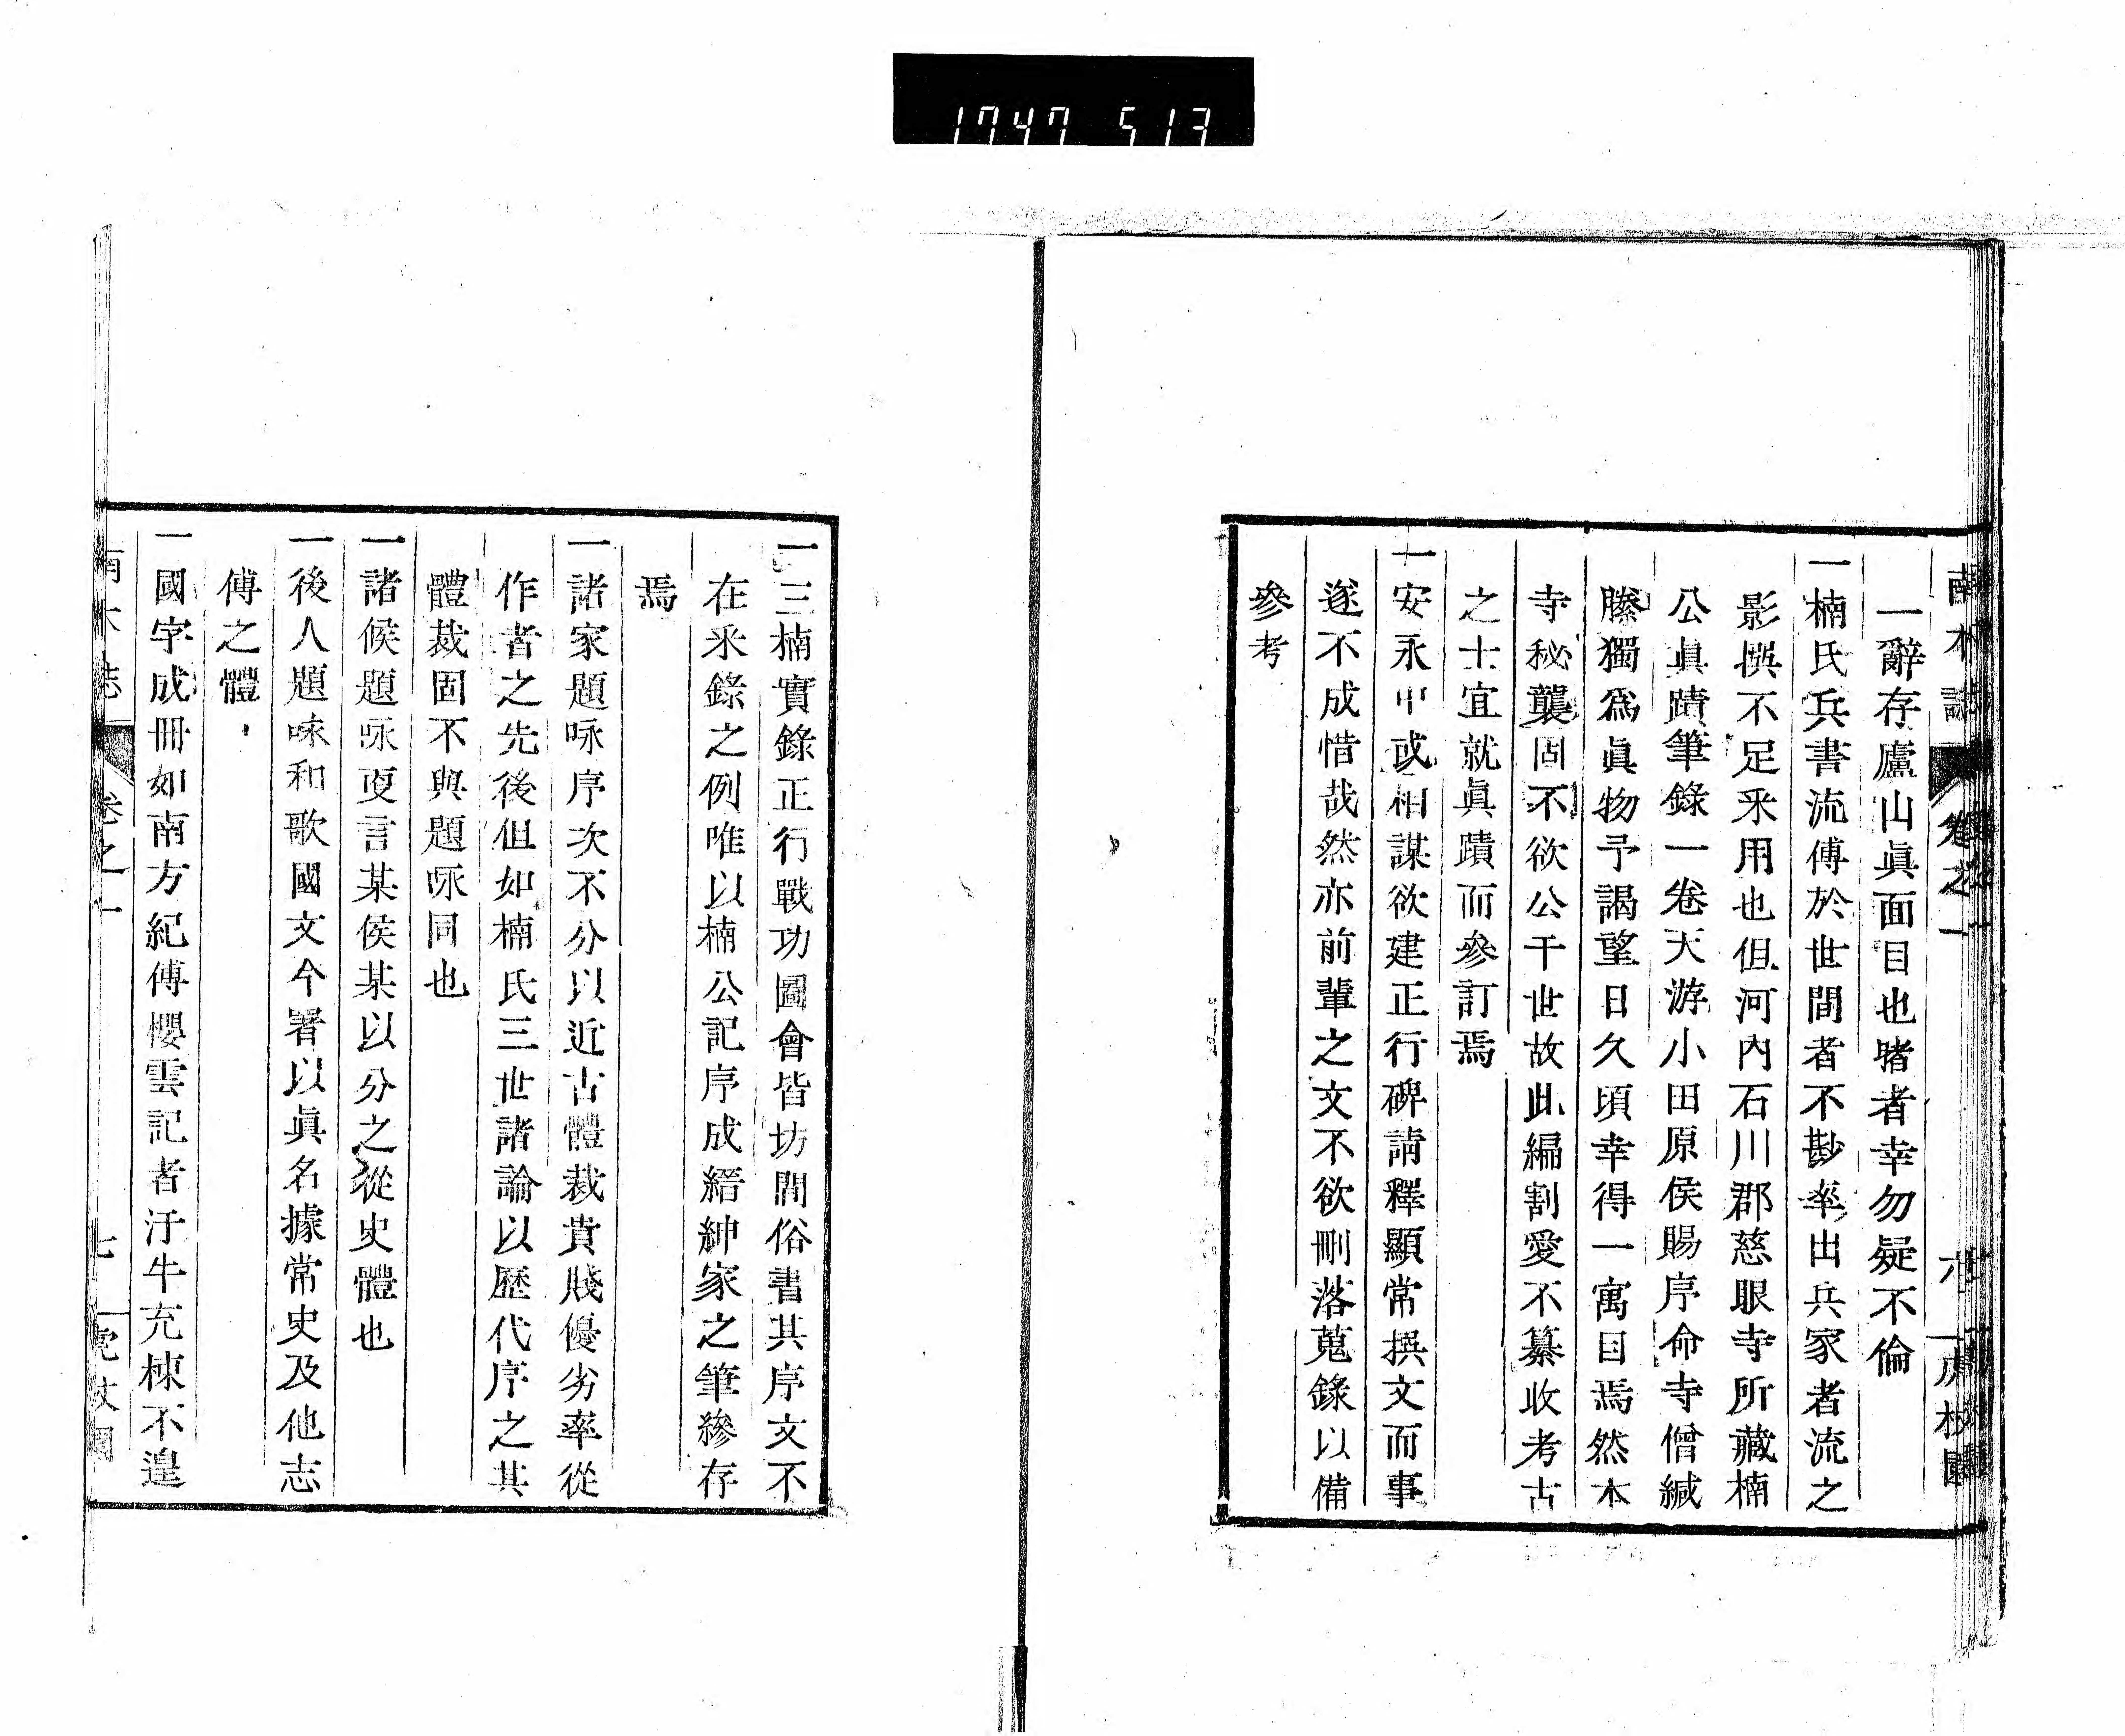 1747 513
南木誌 卷之一 六 一虎杖園
一辭存廬山眞面目也睹者幸勿疑不倫
一楠氏兵書流傅於世間者不尠率出兵家者流之
影撰不足采用也但河內石川郡慈眼寺所藏楠
公眞蹟筆錄一卷天游小田原侯賜序命寺僧緘
縢獨爲眞物予謁望日久頃幸得一寓目焉然本
寺秘襲固不欲公干世故此編割愛不纂收考古
之士宜就眞蹟而參訂焉
一安永中或相謀欲建正行碑請釋顯常撰文而事
遂不成惜哉然亦前輩之文不欲刪落蒐錄以備
參考
一三楠實錄正行戰功圖會皆坊間俗書其序文不
在采錄之例唯以楠公記序成縉紳家之筆縿存
焉
一諸家題咏序次不分以近古體裁貴賤優劣率從
作者之先後但如楠氏三世諸論以歷代序之其
體裁固不與題咏同也
一諸候題咏更言某侯某以分之從史體也
一後人題咏和歌國文今署以眞名據常史及他志
傅之體
一國字成冊如南方紀傅櫻雲記者汗牛充棟不遑
南木誌 卷之一 七 一虎杖園